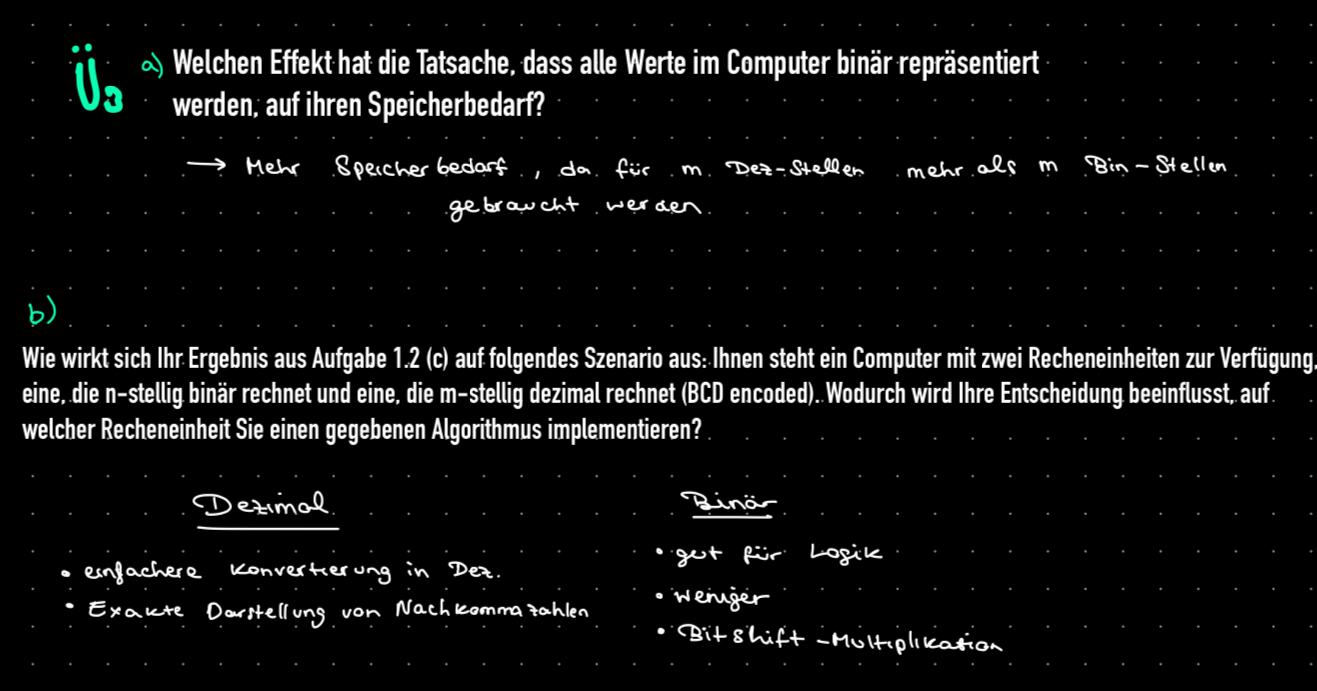 Ü3 a) Welchen Effekt hat die Tatsache, dass alle Werte im Computer binär repräsentiert
werden, auf ihren Speicherbedarf?
→ Mehr Speicherbedarf, da für m Dez-Stellen mehr als m Bin-Stellen
gebraucht werden.
b)
Wie wirkt sich Ihr Ergebnis aus Aufgabe 1.2 (c) auf folgendes Szenario aus: Ihnen steht ein Computer mit zwei Recheneinheiten zur Verfügung,
eine, die n-stellig binär rechnet und eine, die m-stellig dezimal rechnet (BCD encoded). Wodurch wird Ihre Entscheidung beeinflusst, auf
welcher Recheneinheit Sie einen gegebenen Algorithmus implementieren?
Dezimal
• einfachere Konvertierung in Dez.
• Exakte Darstellung von Nachkommazahlen
Binär
• gut für Logik
• weniger
• Bitshift-Multiplikation